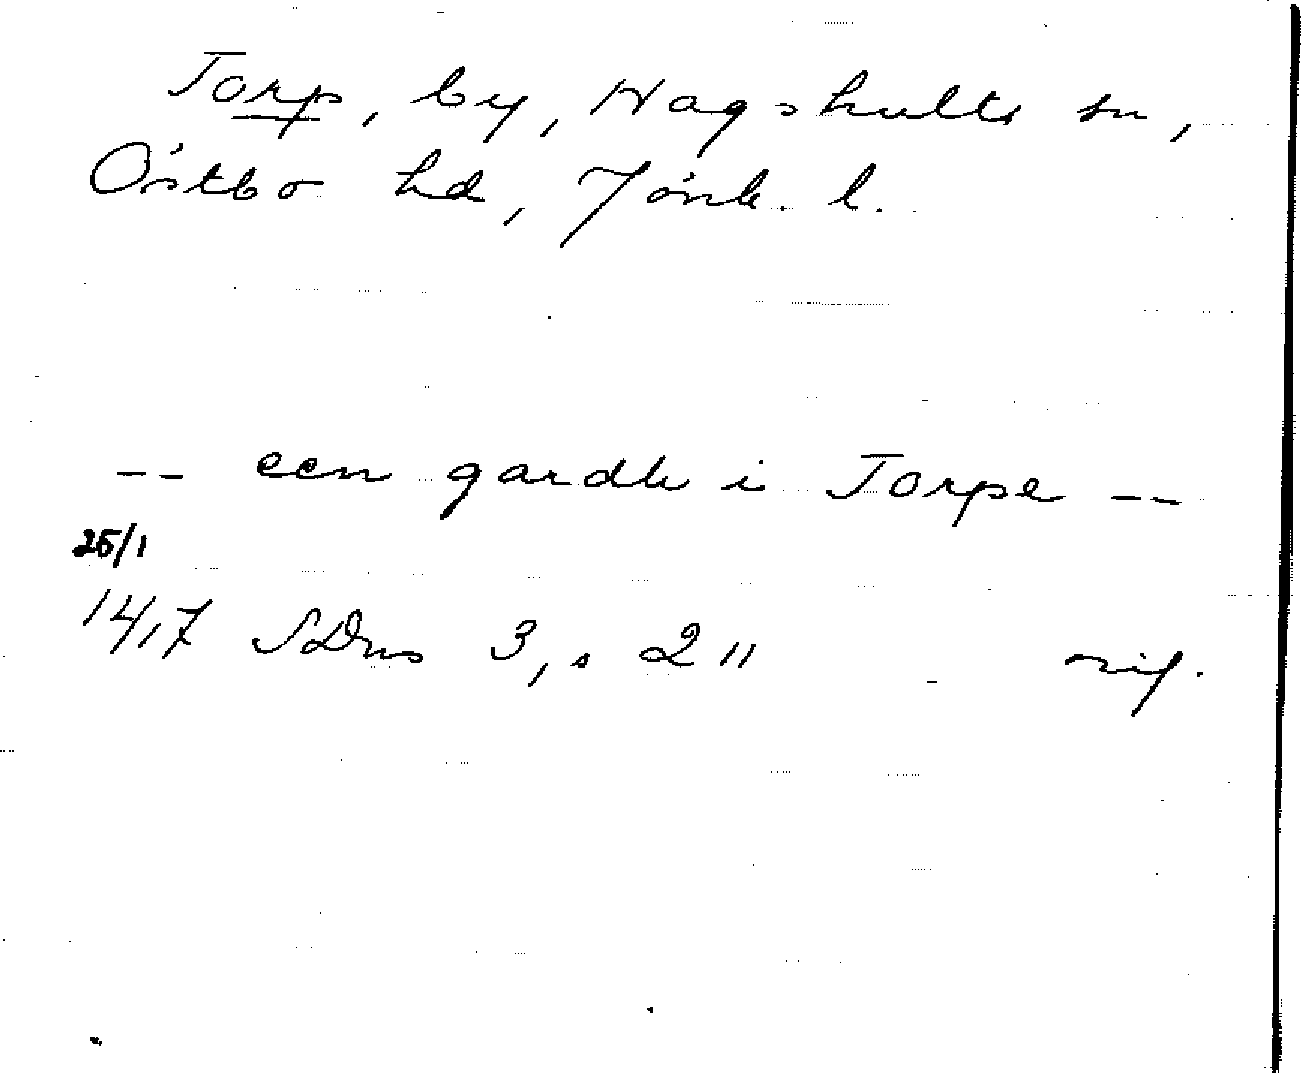 Torp, by, Hagshults sn,
Östbo hd, Jönk. l.
-- een gardh i Torpe --
25/1
1417 SDns 3, s 211